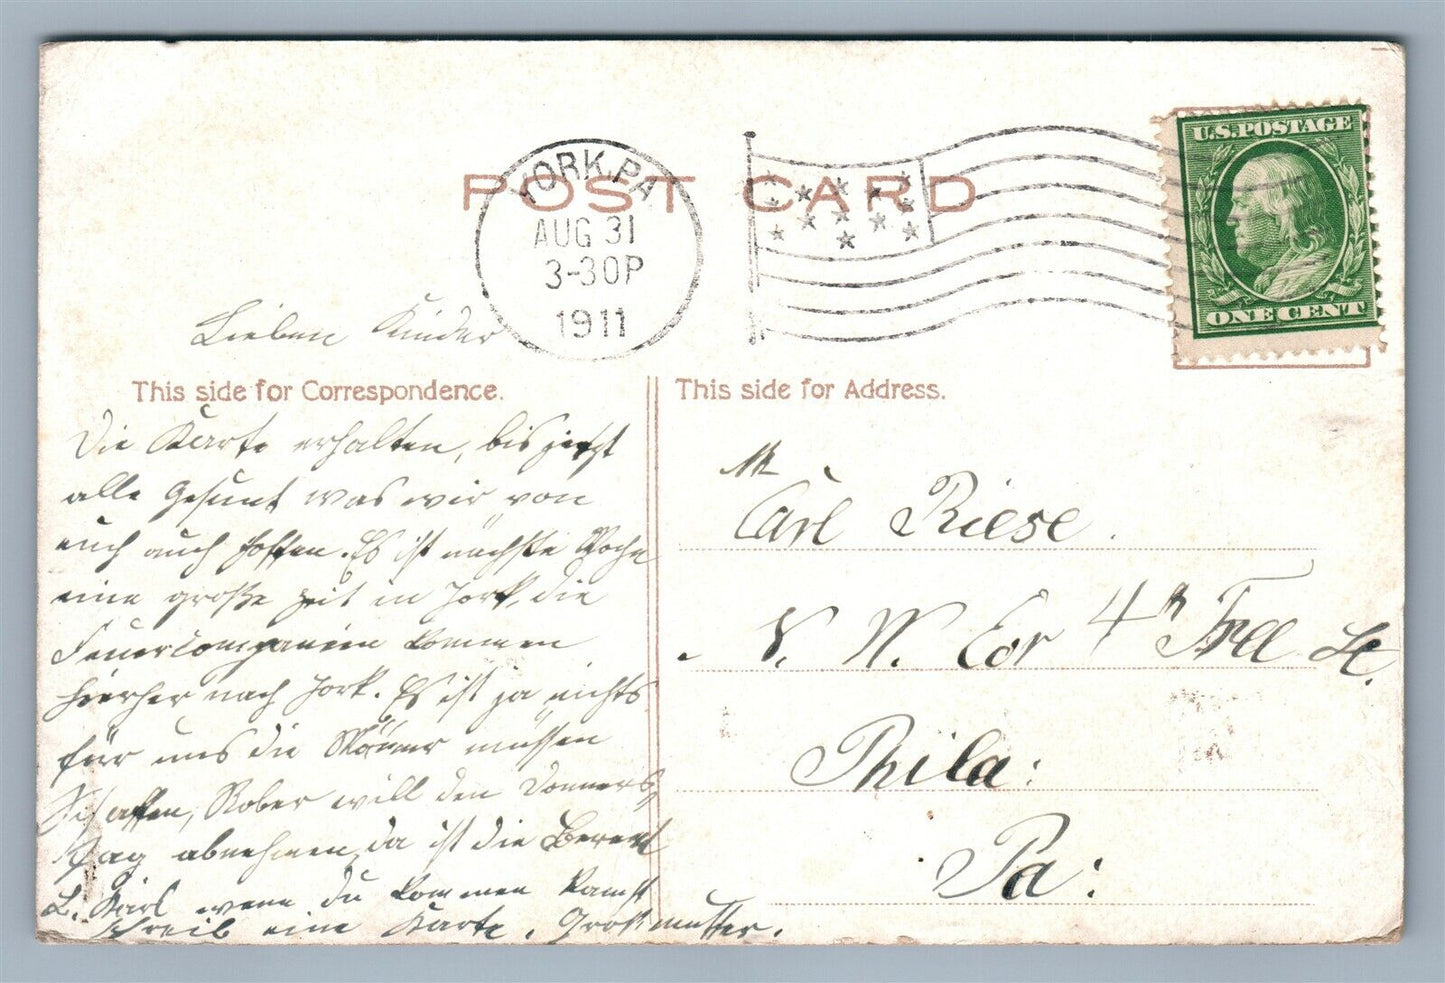 POST CARD
YORK, PA
AUG 31
3-30P
1911
U.S. POSTAGE
ONE CENT
Lieben Kinder
This side for Correspondence.
Die Karte erhalten, bis jetzt
alle Gesunt was wir von
euch auch hoffen. Es ist nächste Woche
eine große Zeit in York, die
Feuercompanien kommen
hierher nach York. Es ist ja nichts
für uns die Männer müssen
Schaffen, Rober will den Donners
Tag abnehmen, da ist die
L. Karl wenn du kommen kannst
schreib eine Karte. Großmutter.
This side for Address.
Mr
Carl Riese.
N. W. Cor 4th St.
Phila:
Pa: